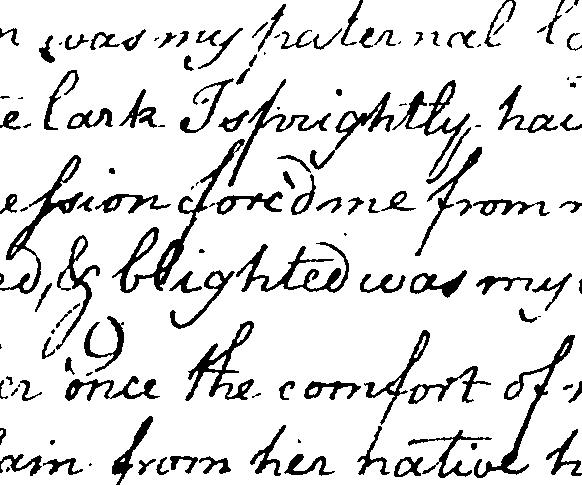 was my paternal
lark I sprightly hai
ession forc'd me from
ed, & blighted was my
er once the comfort of
ain from her native h